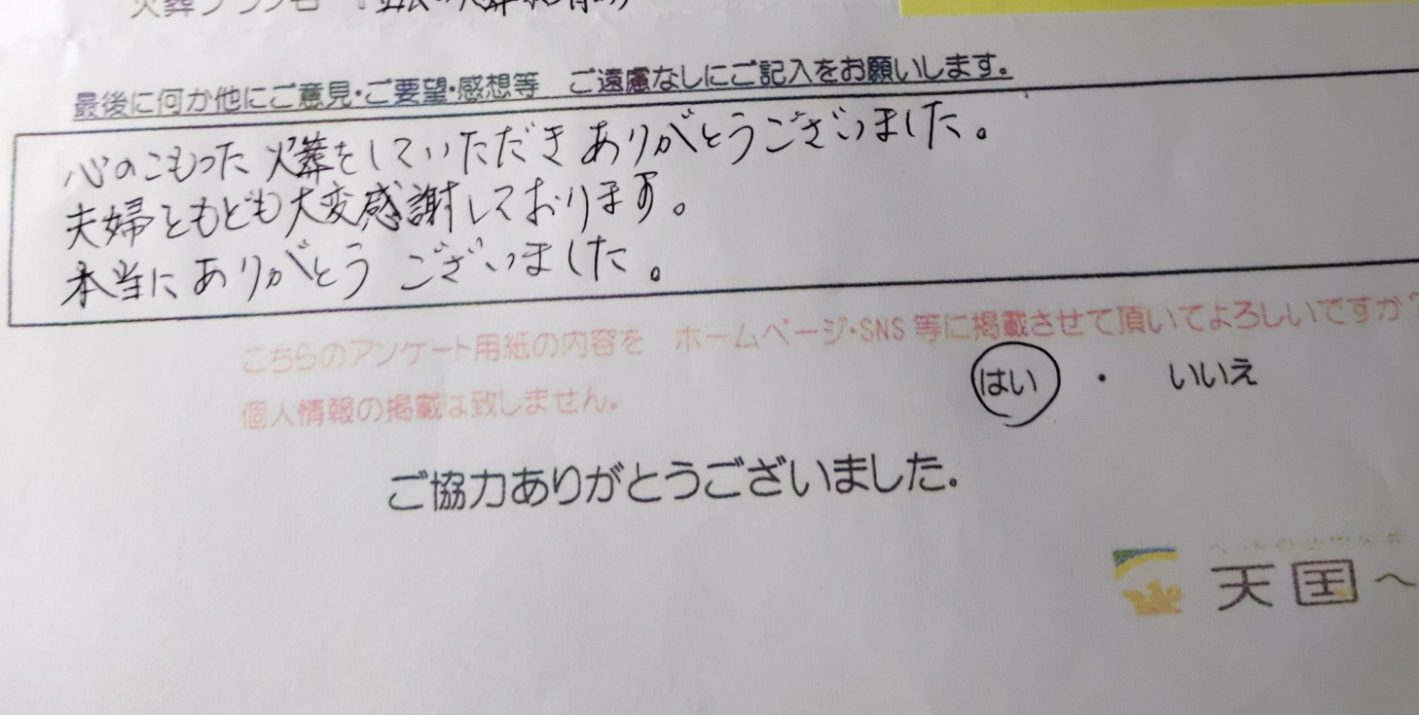 火葬プラン名：
最後に何か他にご意見・ご要望・感想等　ご遠慮なしにご記入をお願いします。
心のこもった火葬をしていただきありがとうございました。
夫婦ともども大変感謝しております。
本当にありがとうございました。
こちらのアンケート用紙の内容を　ホームページ・SNS等に掲載させて頂いてよろしいですか？
はい　・　いいえ
個人情報の掲載は致しません。
ご協力ありがとうございました。
天国へ